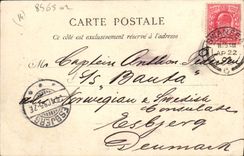 8565
CARTE POSTALE
Ce côté est exclusivement réservé à l'adresse
SWANSEA
AP 22
Mr Captain
S/S "Bauta"
Norwegian & Swedish
Consulate
Esbjerg
Denmark
ESBJERG